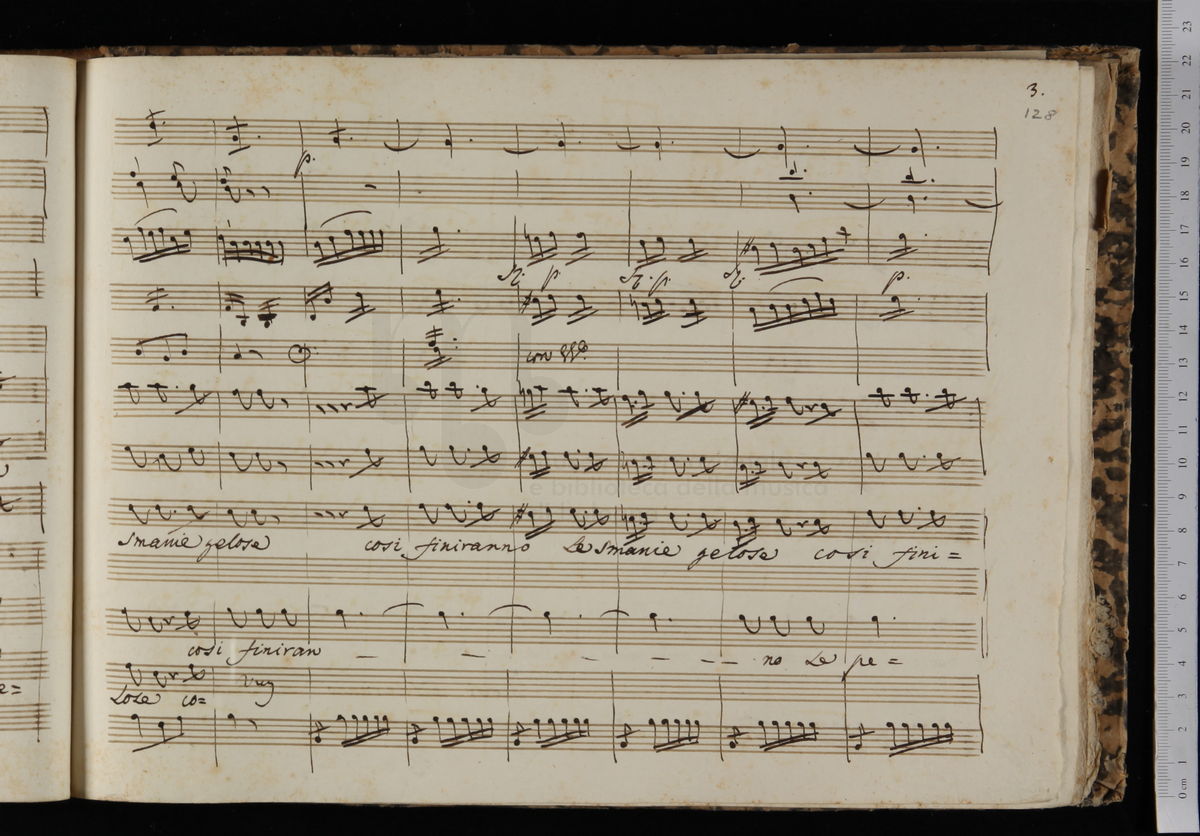 3.
128
p.
p
p
p.
con
smanie gelose così finiranno Le smanie gelose così fini=
così finiran — — — — — — no Le pe=
lose co=
e biblioteca della musica
e=
0 cm 1 2 3 4 5 6 7 8 9 10 11 12 13 14 15 16 17 18 19 20 21 22 23